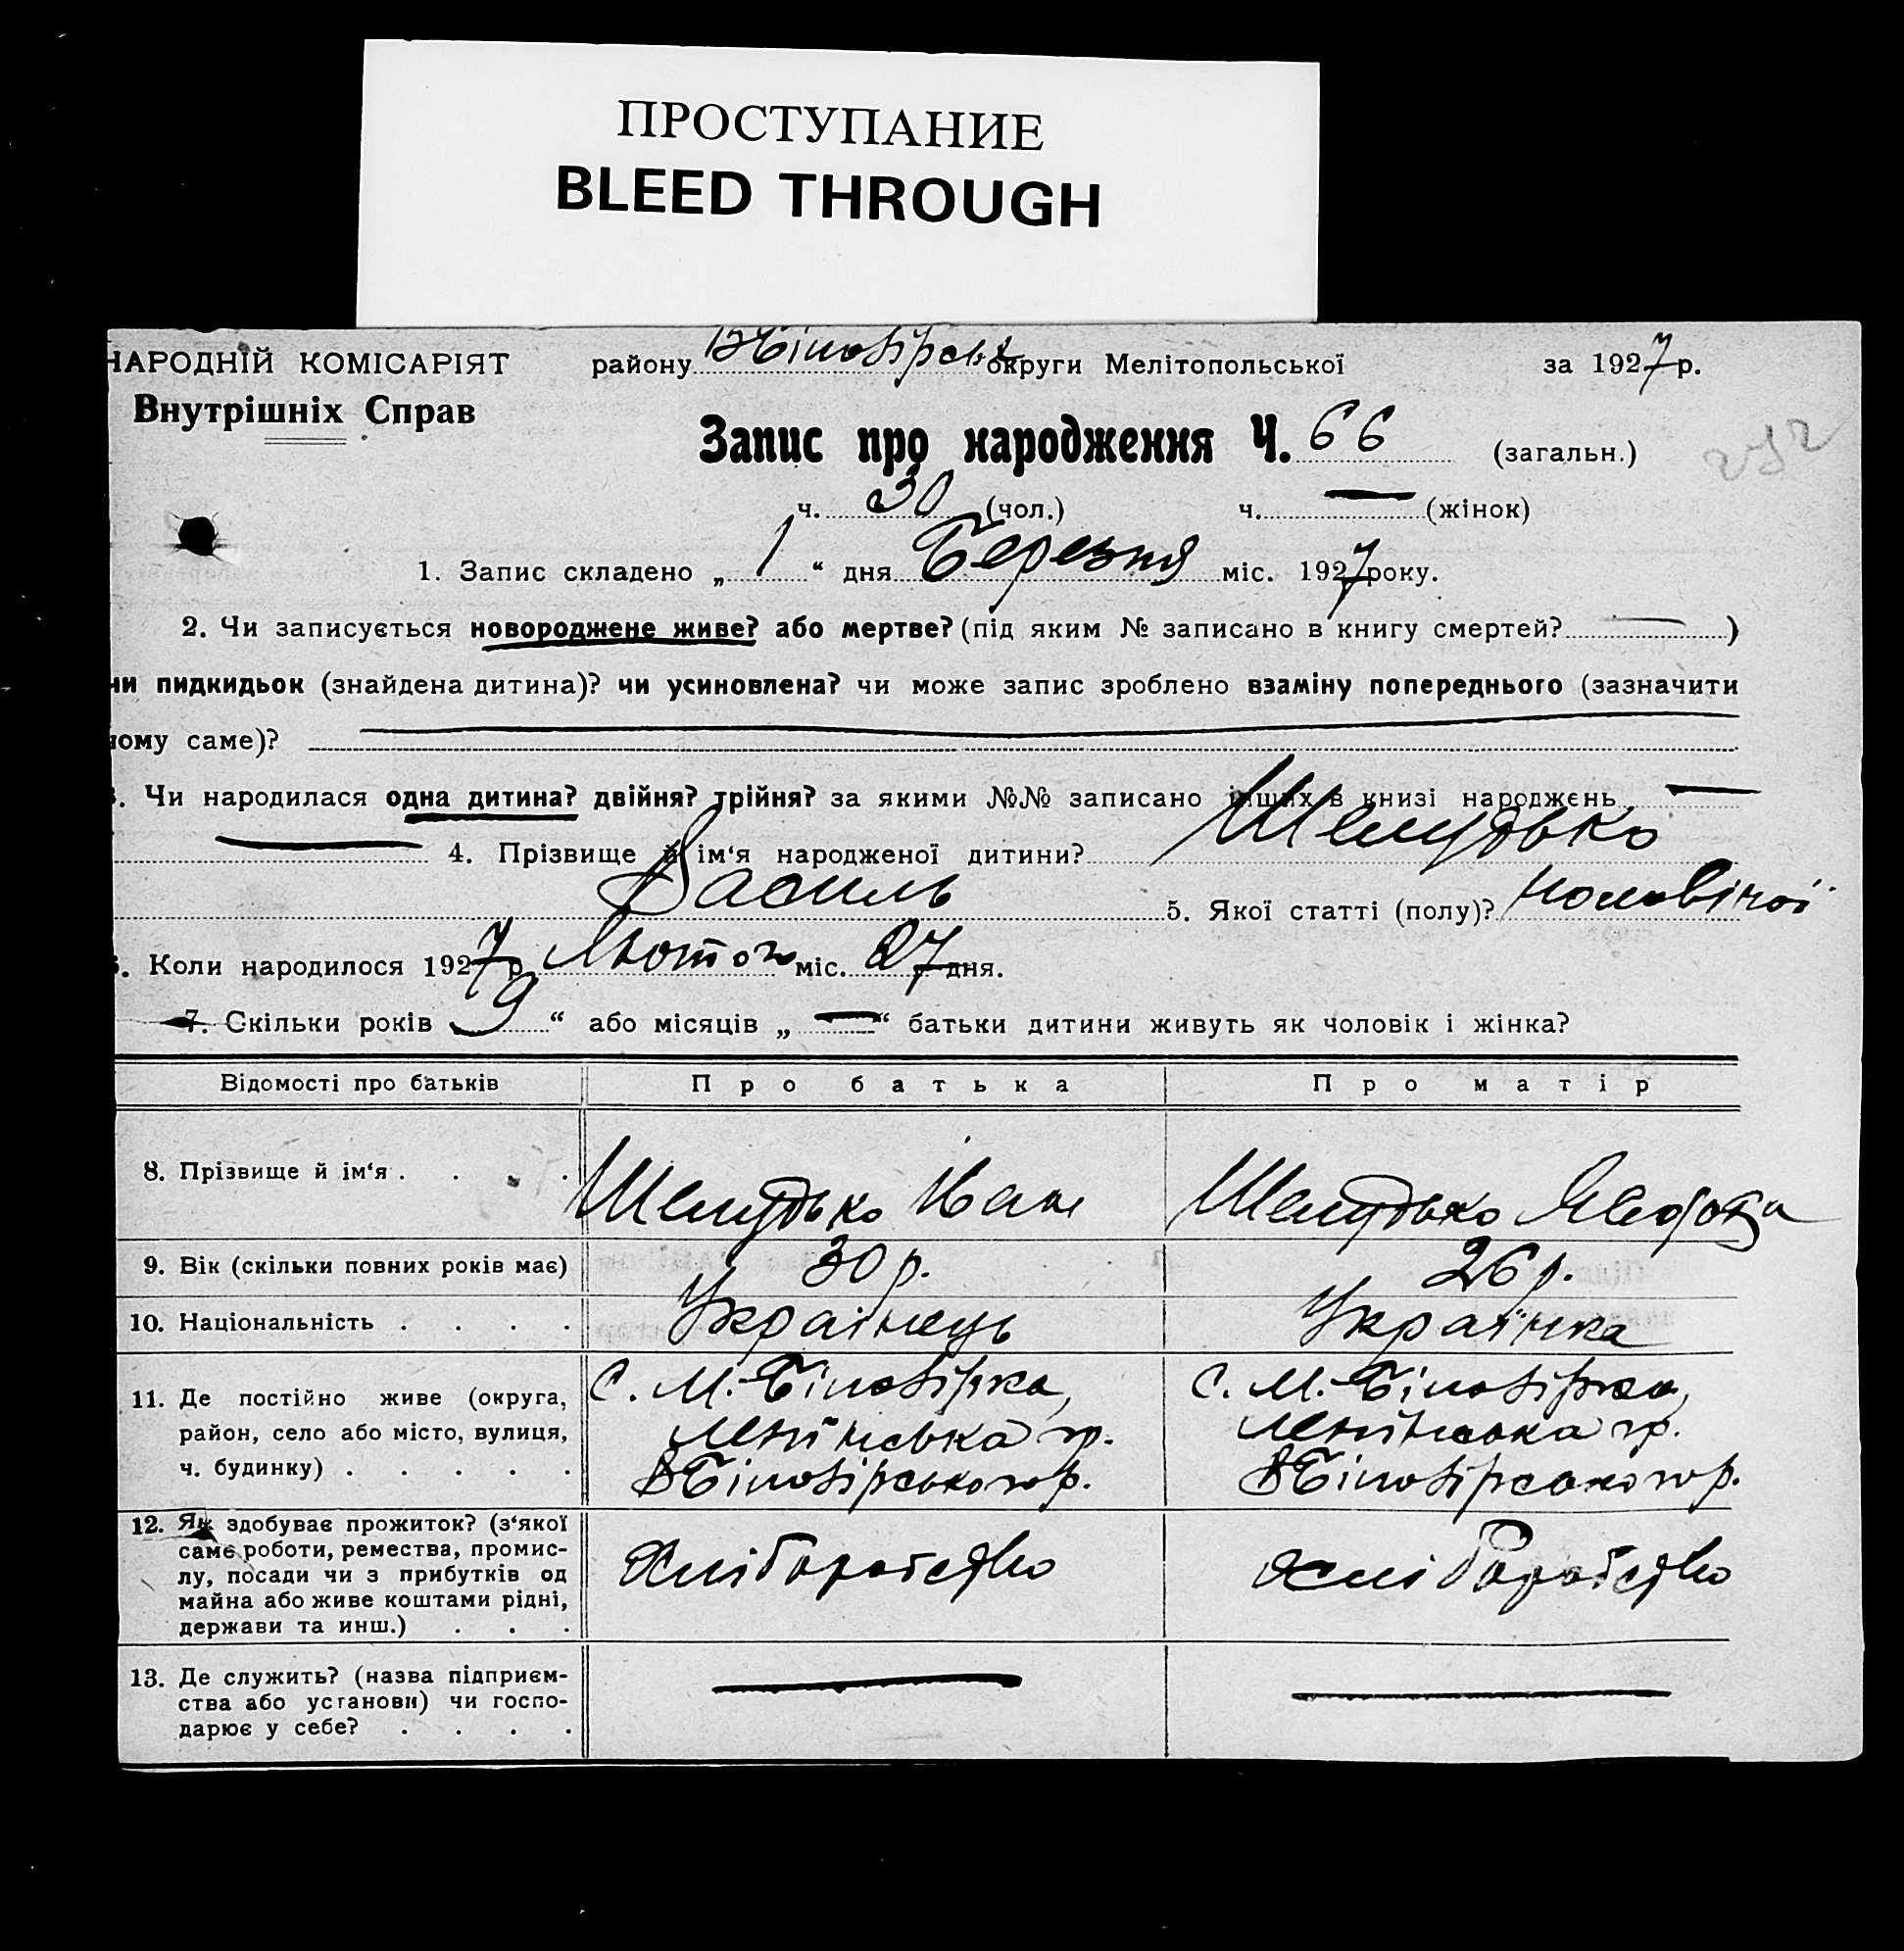 ПРОСТУПАНИЕ
BLEED THROUGH
НАРОДНІЙ КОМІСАРІЯТ району В Білозірськ округи Мелітопольської за 1927 р.
Внутрішніх Справ
Запис про народження Ч. 66 (загальн.)
ч. 30 (чол.) ч. — (жінок)
1. Запис складено „ 1 “ дня Березня міс. 1927 року.
2. Чи записується новороджене живе? або мертве? (під яким № записано в книгу смертей? — )
чи пидкидьок (знайдена дитина)? чи усиновлена? чи може запис зроблено взаміну попереднього (зазначити
чому саме)?
3. Чи народилася одна дитина? двійня? трійня? за якими №№ записано інших в книзі народжень —
— 4. Прізвище й ім‘я народженої дитини?
Василь 5. Якої статті (полу)? чоловічої
6. Коли народилося 1927 р. Лютого міс. 27 дня.
7. Скільки років „ 9 “ або місяців „ — “ батьки дитини живуть як чоловік і жінка?
Відомості про батьків Про батька Про матір
8. Прізвище й ім‘я . . . . Іван
9. Вік (скільки повних років має) 30 р. 26 р.
10. Національність . . . . Українець Українка
11. Де постійно живе (округа, район, село або місто, вулиця, ч. будинку) . . . . .
С. М.-Білозірка,
Ленінська гр.
В Білозірського р.
С. М.-Білозірка,
Ленінська гр.
В Білозірського р.
12. Як здобуває прожиток? (з‘якої
саме роботи, ремества, промис-
лу, посади чи з прибутків од
майна або живе коштами рідні,
держави та инш.) . . .
Хліборобство Хліборобство
13. Де служить? (назва підприєм-
ства або установи) чи госпо-
дарює у себе? . . . .
— —